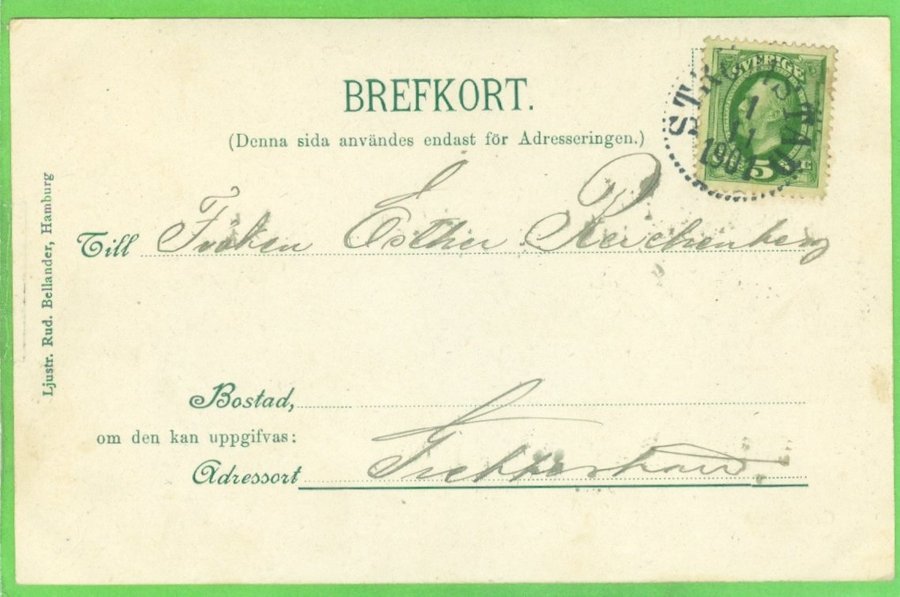 BREFKORT.
(Denna sida användes endast för Adresseringen.)
SVERIGE
5
STRÖMSTAD
1
11
1901
Till Fröken Esther Reichenberg
Ljustr. Rud. Bellander, Hamburg
Bostad,
om den kan uppgifvas:
Adressort